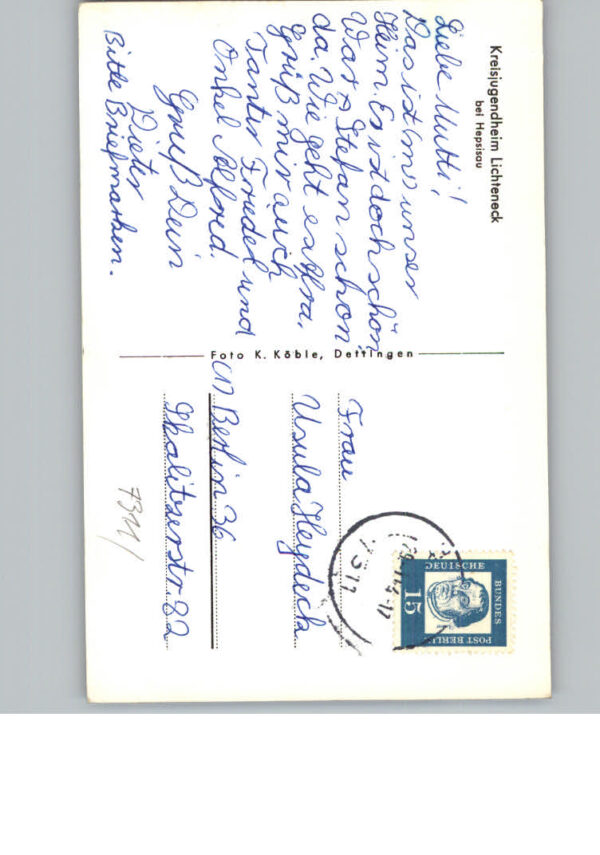 Kreisjugendheim Lichteneck
bei Hepsisau
Liebe Mutti!
Das ist unser
Heim. Es ist doch schön
War Stefan schon
da. Wie geht es
Grüß mir auch
Tante Friedel und
Onkel Alfred.
Gruß Dein
Dieter
Bitte Briefmarken.
Foto K. Köble, Dettingen
Frau
Usula Heydeck
(1) Berlin 36
Skalitzerstr. 82
DEUTSCHE
BUNDES
POST BERLIN
15
7311
7311/